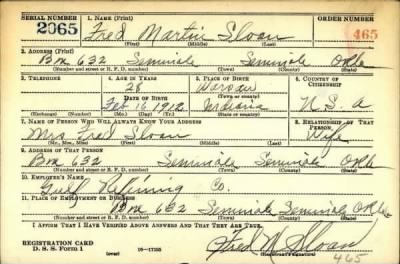 SERIAL NUMBER 1. NAME (Print) ORDER NUMBER
2065 Fred Martin Sloan 465
(First) (Middle) (Last)
2. ADDRESS (Print)
Box 632 Seminole Seminole Okla
(Number and street or R. F. D. number) (Town) (County) (State)
3. TELEPHONE 4. AGE IN YEARS 5. PLACE OF BIRTH 6. COUNTRY OF CITIZENSHIP
28 Warsaw
DATE OF BIRTH (Town or county)
Feb 16 1912 Indiana U.S.A
(Exchange) (Number) (Mo.) (Day) (Yr.) (State or country)
7. NAME OF PERSON WHO WILL ALWAYS KNOW YOUR ADDRESS 8. RELATIONSHIP OF THAT PERSON
Mrs Fred Sloan Wife
(Mr., Mrs., Miss) (First) (Middle) (Last)
9. ADDRESS OF THAT PERSON
Box 632 Seminole Seminole Okla
(Number and street or R. F. D. number) (Town) (County) (State)
10. EMPLOYER'S NAME
Gulf Refining Co.
11. PLACE OF EMPLOYMENT OR BUSINESS
Box 632 Seminole Seminole Okla
(Number and street or R. F. D. number) (Town) (County) (State)
I AFFIRM THAT I HAVE VERIFIED ABOVE ANSWERS AND THAT THEY ARE TRUE.
REGISTRATION CARD
D. S. S. Form 1 (over) 16-17105 Fred M Sloan
(Registrant's signature)
465